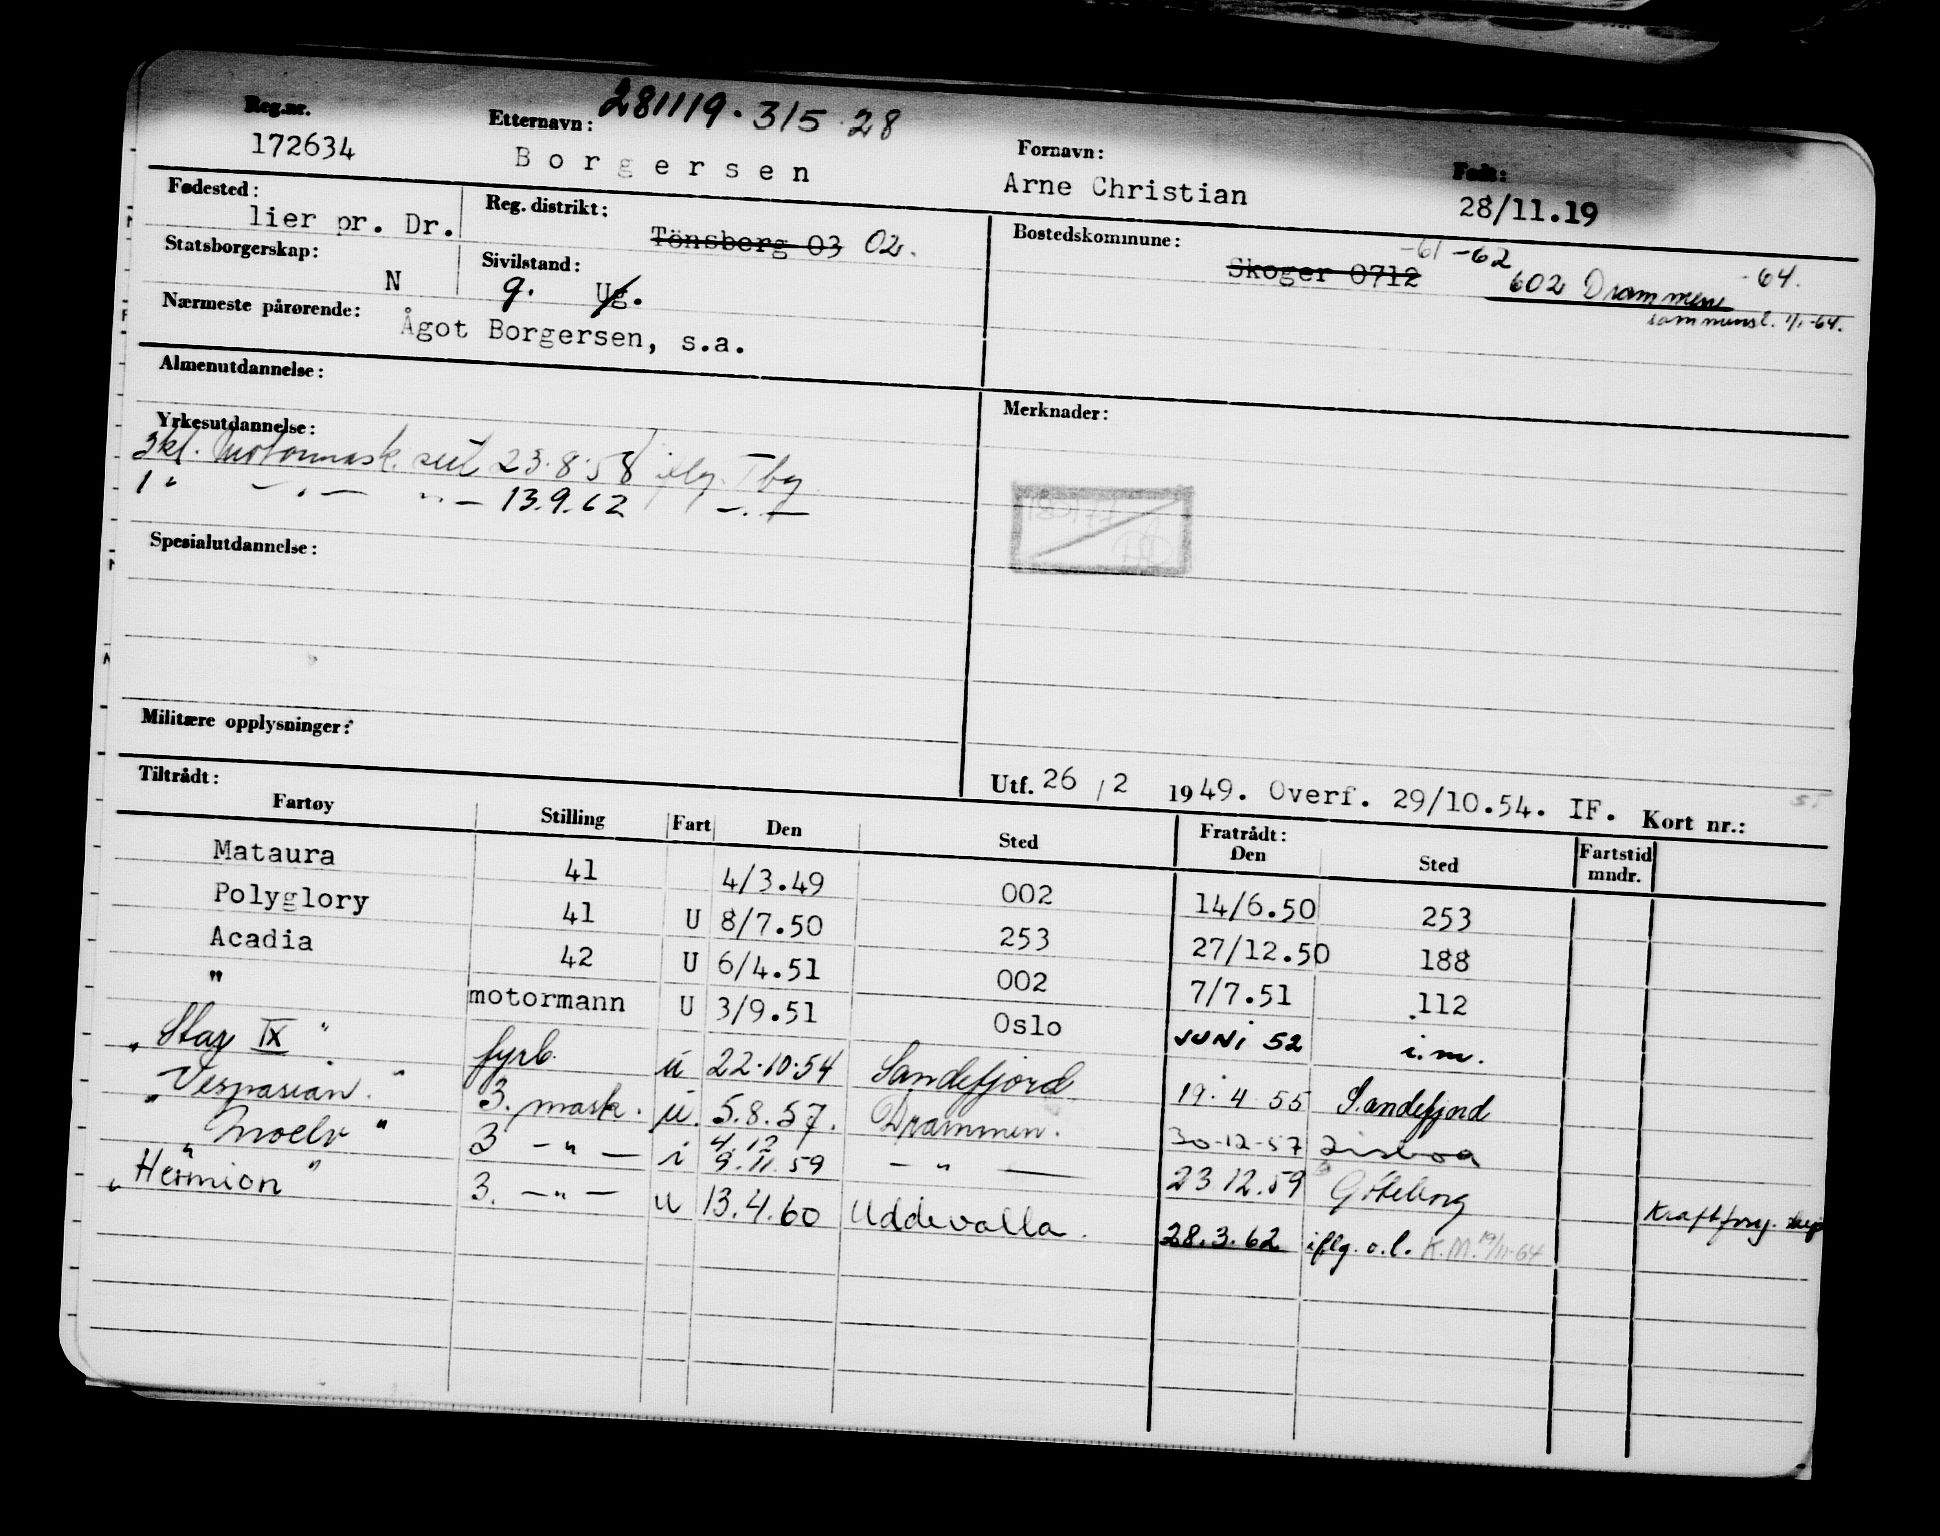 281119.315 28
Reg.nr. Etternavn: Fornavn: Født:
172634 Borgersen Arne Christian 28/11.19
Fødested: Reg. distrikt: Bostedskommune:
lier pr. Dr. Tönsberg 03 02. Skoger 0712 -61 -62 602 Drammen -64.
sammensl. 1/1-64.
Statsborgerskap: Sivilstand:
N g. Ug.
Nærmeste pårørende: Ågot Borgersen, s.a.
Almenutdannelse: Merknader:
Yrkesutdannelse:
3kl. Motormask. sert 23.8.58 iflg. Tbg
1 " — " — " — 13.9.62 — " —
Spesialutdannelse:
Militære opplysninger:
Utf. 26/2 1949. Overf. 29/10.54. IF. Kort nr.:
Tiltrådt: Fratrådt:
Fartøy Stilling Fart Den Sted Den Sted Fartstid mndr.
Mataura 41 4/3.49 002 14/6.50 253
Polyglory 41 U 8/7.50 253 27/12.50 188
Acadia 42 U 6/4.51 002 7/7.51 112
" motormann U 3/9.51 Oslo JUNI 52 i.m.
"Star IX" fyrb. u 22.10.54 Sandefjord 19.4 55 Sandefjord
"Vespasian" 3. mask. u. 5.8.57. Drammen. 30-12-57 Lisboa
"Moelv" 3 — " — i 4.12 9.11.59 — " — 23 12.59 Göteborg
"Hermion" 3. — " — u 13.4.60 Uddevalla. 28.3.62 iflg. o.l. K.M. 19/11-64 Kraftforsy.